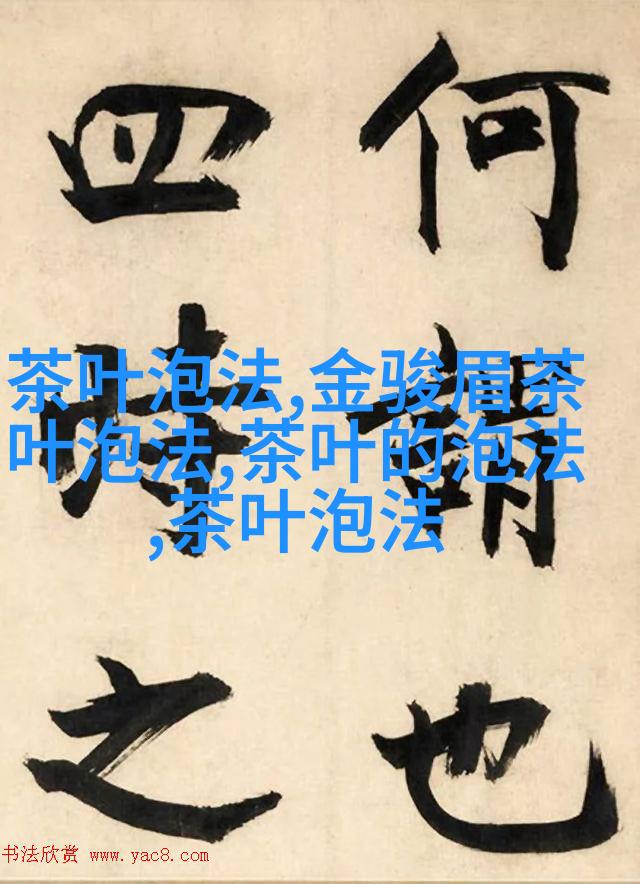 何謂也
四時之
茶叶泡法,金骏眉茶
叶泡法,茶叶的泡法
,茶叶泡法
书法欣赏 www.yac8.com